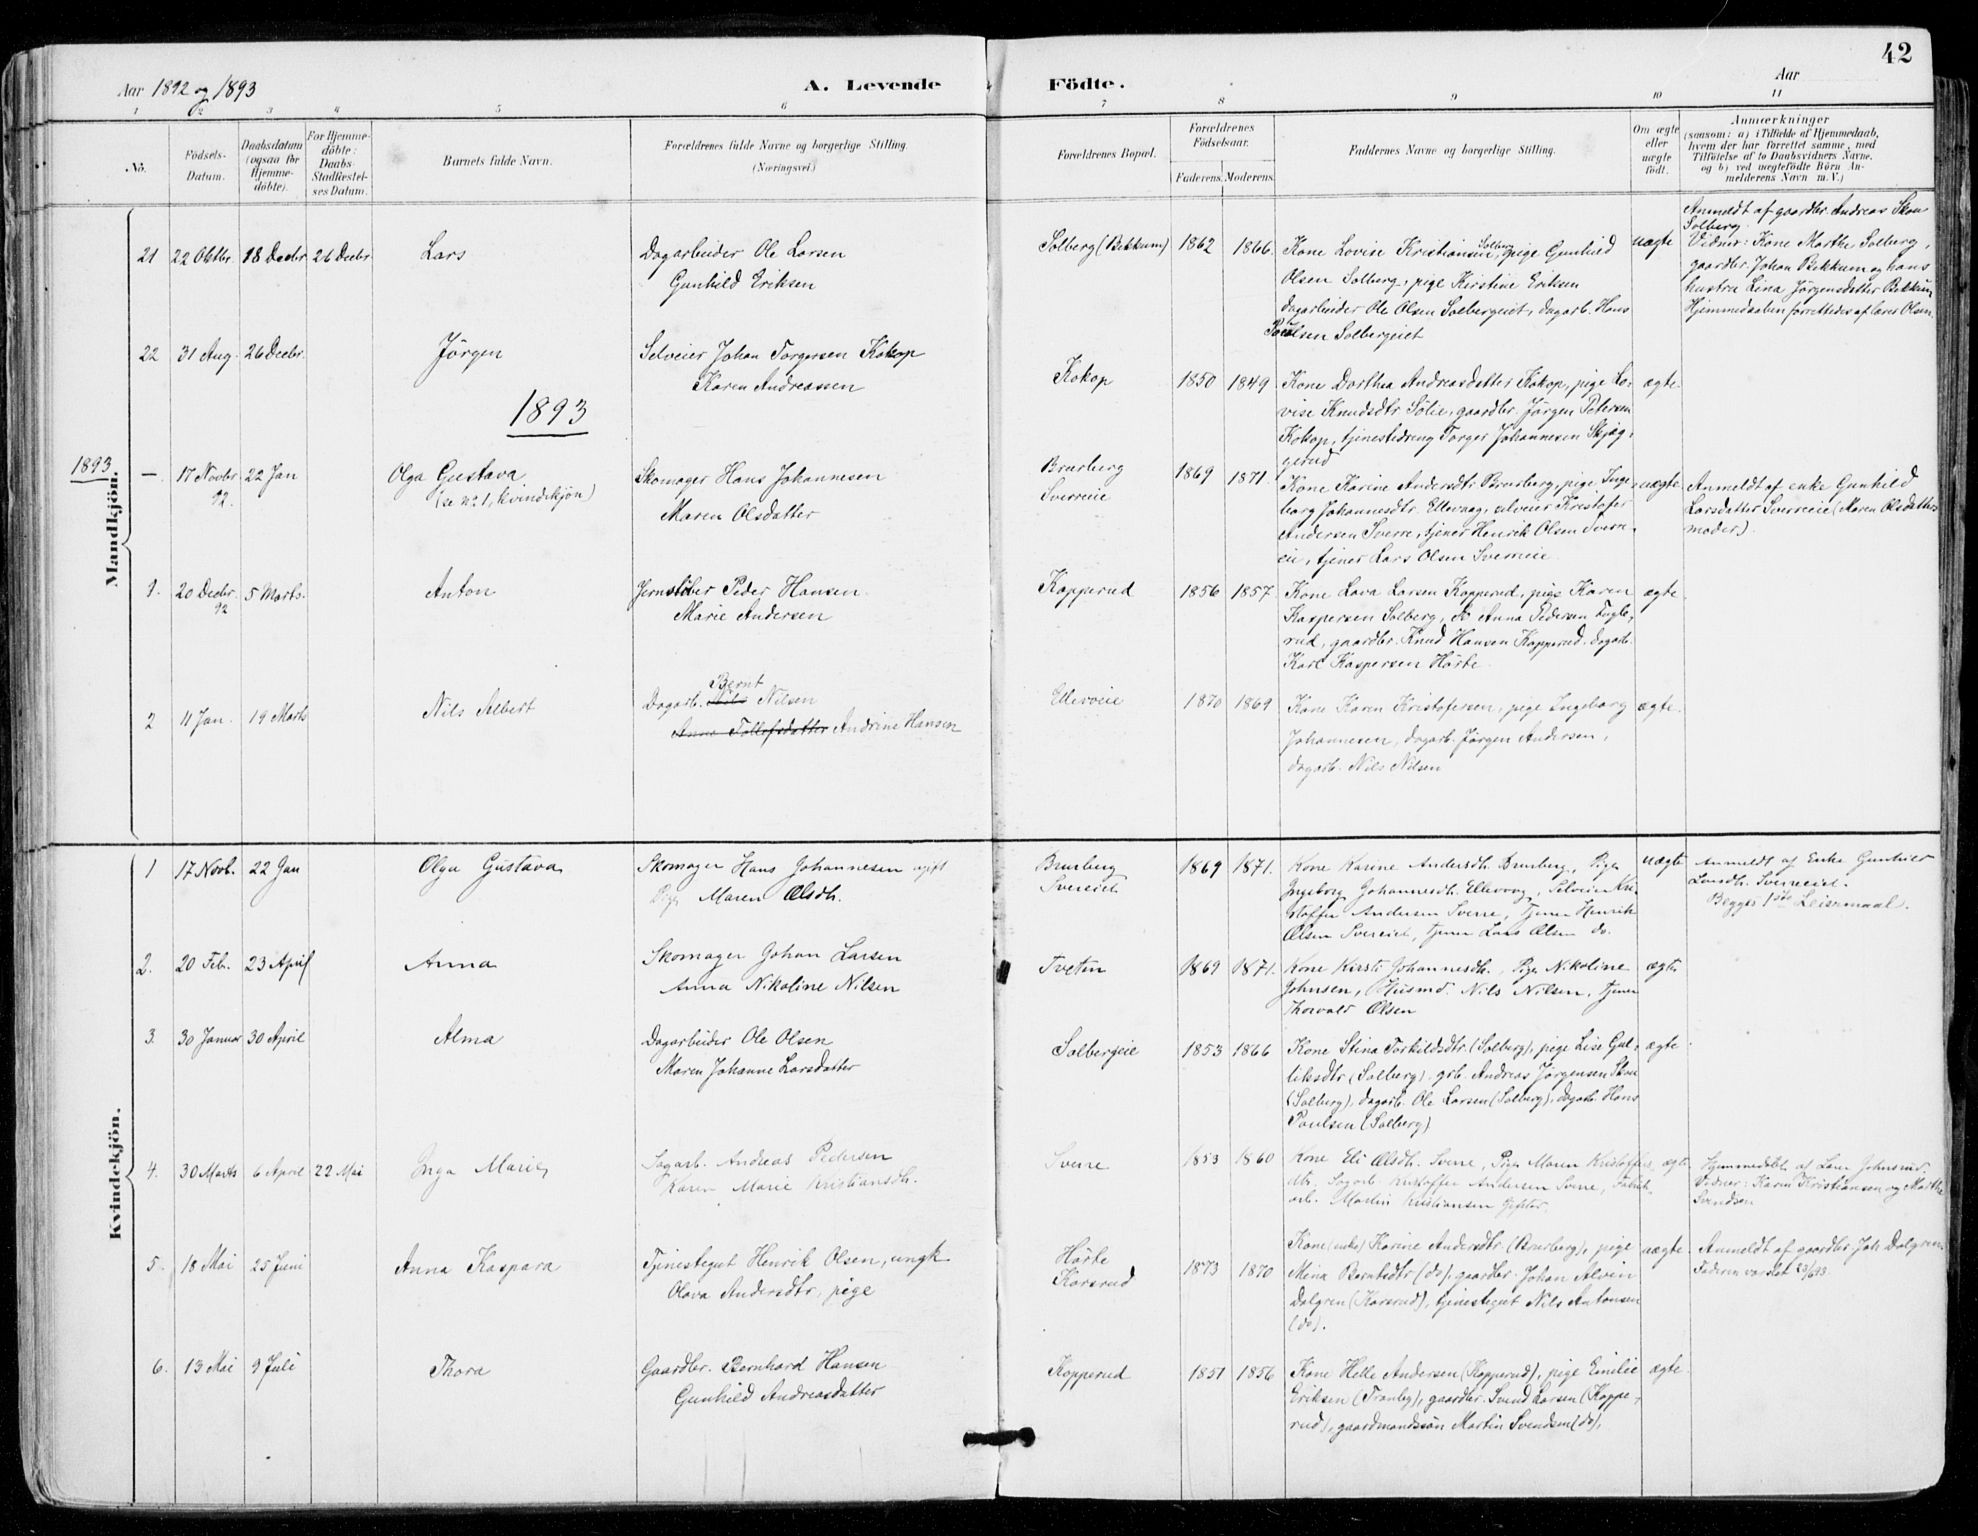 42
Aar 1892 og 1893
A. Levende Födte.
Aar
1 2 3 4 5 6 7 8 9 10 11
No.
Födsels-Datum.
Daabsdatum (ogsaa for Hjemme-döbte).
For Hjemme-döbte: Daabs-Stadfæstel-ses Datum.
Barnets fulde Navn.
Forældrenes fulde Navne og borgerlige Stilling.
(Næringsvei.)
Forældrenes Bopæl.
Forældrenes Födselsaar.
Faderens. Moderens.
Faddernes Navne og borgerlige Stilling.
Om ægte eller uægte födt.
Anmærkninger
(saasom: a) i Tilfælde af Hjemmedaab,
hvem der har forrettet samme, med
Tilföielse af to Daabsvidners Navne,
og b) ved uægtefödte Börn An-
melderens Navn m. V.)
Mandkjön.
21 22 Oktbr. 18 Decbr 26 Decbr Lars
Dagarbeider Ole Larsen
Gunhild Eriksen
Solberg (Bekkum) 1862 1866
Kone Lovise Kristiansen Solberg, pige Gunhild
Olsen Solberg, pige Kirstine Eriksen
dagarbeider Ole Olsen Solbergeiet, dagarb. Hans
Poulsen Solbergeiet
uægte
Anmeldt af gaardbr. Andreas Skau
Solberg.
Vidner: Kone Marthe Solberg,
gaardbr. Johan Bekkum og hans
hustru Lina Jørgensdatter Bekkum
Hjemmedaaben forrettedes af lærer Olsen.
22 31 Aug. 26 Decbr. Jörgen
Selveier Johan Torgersen Kokop
Karen Andreassen
Kokop 1850 1849
Kone Dorthea Andreasdatter Kokop, pige Lo-
vise Knudsdtr Sölie, gaardbr. Jörgen Petersen
Kokop, tjenestedreng Torger Johannesen Skjæg-
gerud
ægte.
1893
1893
— 17 Novbr 92. 22 Jan Olga Gustava
(se no 1, kvindekjøn)
Skomager Hans Johannesen
Maren Olsdatter
Brurberg
Sverreie
1869 1871.
Kone Karine Andersdtr Brurberg, pige Inge-
borg Johannesdtr. Ellevaag, selveier Kristofer
Andersen Sverre, tjener Henrik Olsen Sverre-
eie, tjener Lars Olsen Sverreie
uægte.
Anmeldt af enke Gunhild
Larsdatter Sverreeie (Maren Olsdatters
moder).
1. 20 Decbr. 92 5 Marts. Anton
Jernstöber Peder Hansen
Marie Andersen
Kopperud 1856 1857.
Kone Lava Larsen Kopperud, pige Karen
Kaspersen Solberg, Anna Pedersen Fugle-
rud, gaardbr. Knud Hansen Kopperud. dagarb.
Karl Kaspersen Hörte.
ægte.
2 11 Jan. 19 Marts Nils Albert
Dagarb. Nils Bernt Nilsen
Anne Tollefsdatter Andrine Hansen
Ellevoeie 1870 1869
Kone Karen Kristofersen, pige Ingeborg
Johannesen, dagarb. Jörgen Andersen,
dagarb. Nils Nilsen
ægte.
Kvindekjön.
1 17 Novb. 22 Jan Olga Gustava
Skomager Hans Johannesen ugift
Pige Maren Olsdtr.
Brurberg
Svereeiet
1869 1871.
Kone Karine Andersdtr. Brurberg, Pige
Ingeborg Johannesdtr. Ellevoog, Selveier Kri-
stoffer Andersen Sverre, Tjener Henrik
Olsen Svereiet, Tjener Lars Olsen do.
uægte
Anmeldt af Enke Gunhild
Larsdtr. Sverreeiet.
Begges 1ste Leiermaal.
2. 20 Feb. 23 April Anna
Skomager Johan Larsen
Anna Nikoline Nilsen
Tveten 1869 1871.
Kone Kirsti Johannesdtr., Pige Nikoline
Johnsen, Husmd. Nils Nilsen, Tjener
Thorvald Olsen
ægte
3. 30 Januar 30 April Alma
Dagarbeider Ole Olsen
Maren Johanne Larsdatter
Solbergeie 1853 1866
Kone Stina Torkildsdtr. (Solberg), pige Lise Gul-
liksdtr (Solberg). grb. Andreas Jörgensen Skau
(Solberg), dagarb. Ole Larsen (Solberg), dagarb. Hans
Poulsen (Solberg)
ægte
4. 30 Marts 6 April 22 Mai Inga Marie
Sagarb. Andreas Pedersen
Karen Marie Kristiansdtr.
Sverre 1853 1860
Kone Eli Olsdtr. Sverre, Pige Maren Kristoffers-
dtr, Sagarb. Kristoffer Andersen Sverre, Fabrik-
arb. Martin Kristiansen Gifter.
ægte
Hjemmedöbt af Lærer Johnsrud.
Vidner: Karen Kristiansen og Marthe
Svendsen
5. 18 Mai 25 Juni Anna Kaspara
Tjenestegut Henrik Olsen, ungk
Olava Andersdtr, pige
Hörte
Korsrud
1873 1870
Kone (enke) Karine Andersdtr. (Brurberg), pige
Mina Berntsdtr (do), gaardbr. Johan Alvin
Dalgren (Korsrud), tjenestegut Nils Antonsen
(do).
uægte.
Anmeldt af gaardbr Joh. Dalgren.
Faderen varslet 23/6 93.
6. 13 Mai 9 Juli Thora
Gaardbr. Bernhard Hansen
Gunhild Andreasdatter
Kopperud 1851 1856
Kone Helle Andersen (Kopperud), pige Emilie
Eriksen (Tranby), gaardbr. Svend Larsen (Koppe-
rud), gaardmandssön Martin Svendsen (do).
ægte.